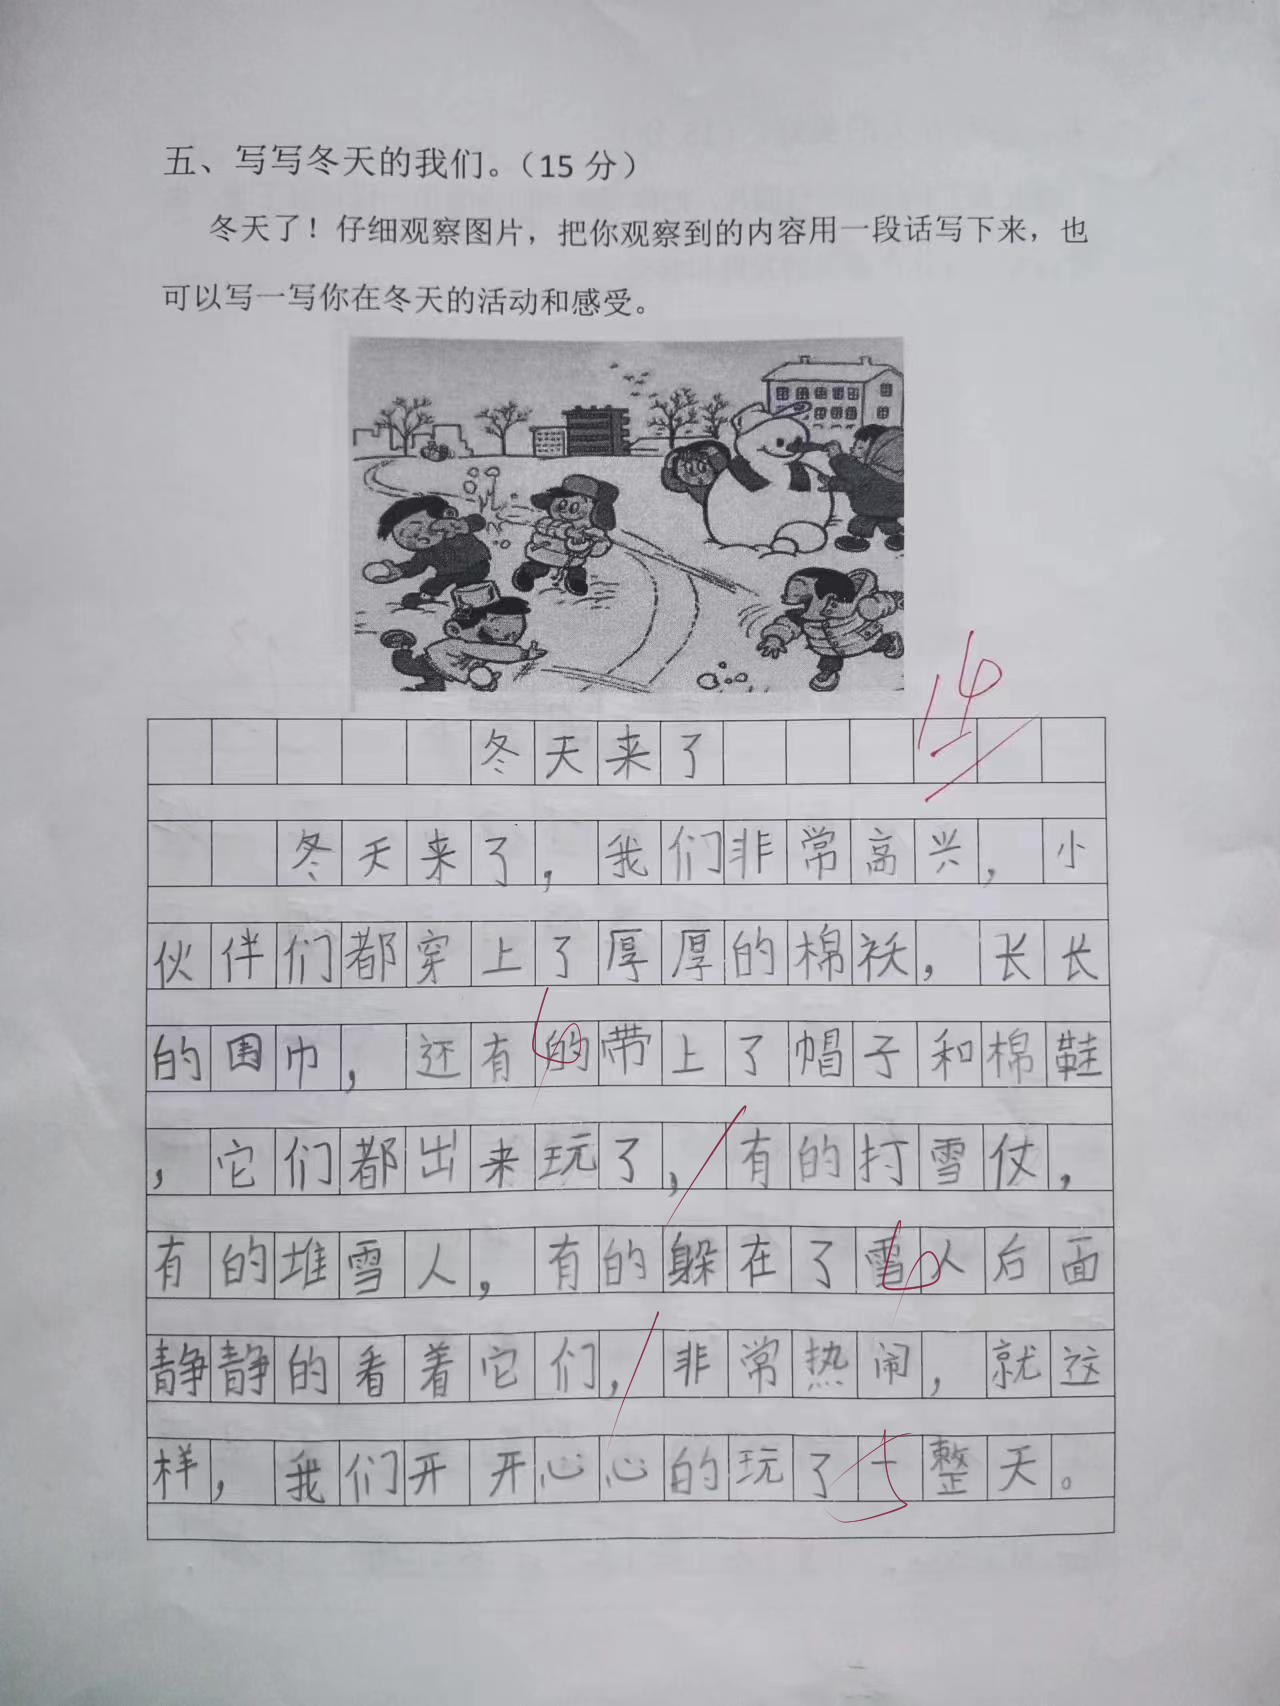 五、写写冬天的我们。(15 分)
冬天了！仔细观察图片，把你观察到的内容用一段话写下来，也
可以写一写你在冬天的活动和感受。
14
冬天来了
冬天来了，我们非常高兴，小
伙伴们都穿上了厚厚的棉袄，长长
的围巾，还有的带上了帽子和棉鞋
，它们都出来玩了，有的打雪仗，
有的堆雪人，有的躲在了雪人后面
静静的看着它们，非常热闹，就这
样，我们开开心心的玩了一整天。